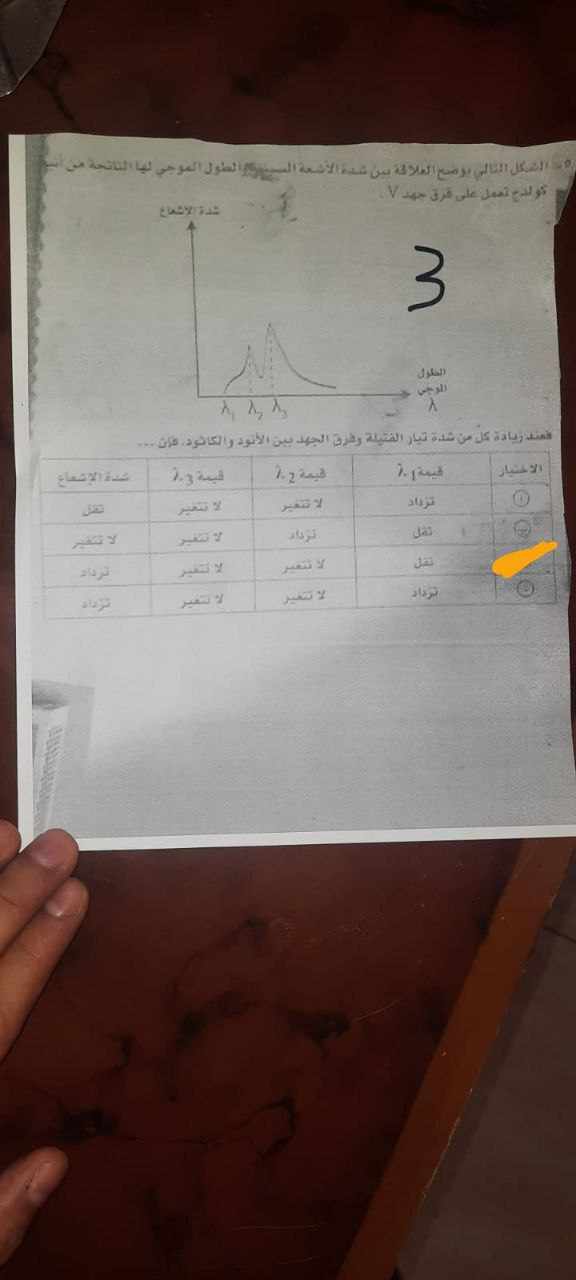 الشكل التالي يوضح العلاقة بين شدة الأشعة السينية والطول الموجي لها الناتجة من
كولدج تعمل على فرق جهد V .
شدة الإشعاع
3
الطول
الموجي
λ
λ1 λ2 λ3
فعند زيادة كل من شدة تيار الفتيلة وفرق الجهد بين الأنود والكاثود، فإن ...
الاختيار قيمة λ1 قيمة λ2 قيمة λ3 شدة الإشعاع
أ تزداد لا تتغير لا تتغير تقل
ب تقل تزداد لا تتغير لا تتغير
تقل لا تتغير لا تتغير تزداد
د تزداد لا تتغير لا تتغير تزداد